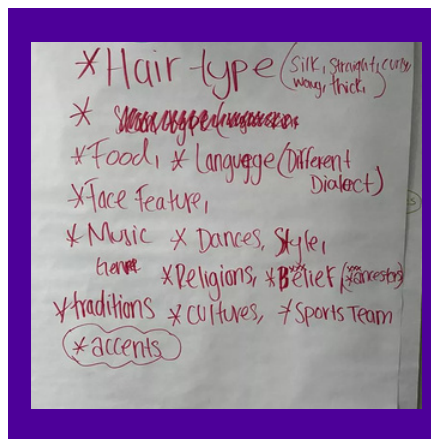 *Hair type (Silk, Straight, curly
wavy, thick,)
*
*Food, * Language (Different
Dialect)
*Face Feature,
*Music * Dances, Style,
Genre
*Religions, *Belief (ancestors)
*traditions *cultures, *Sports Team
*accents